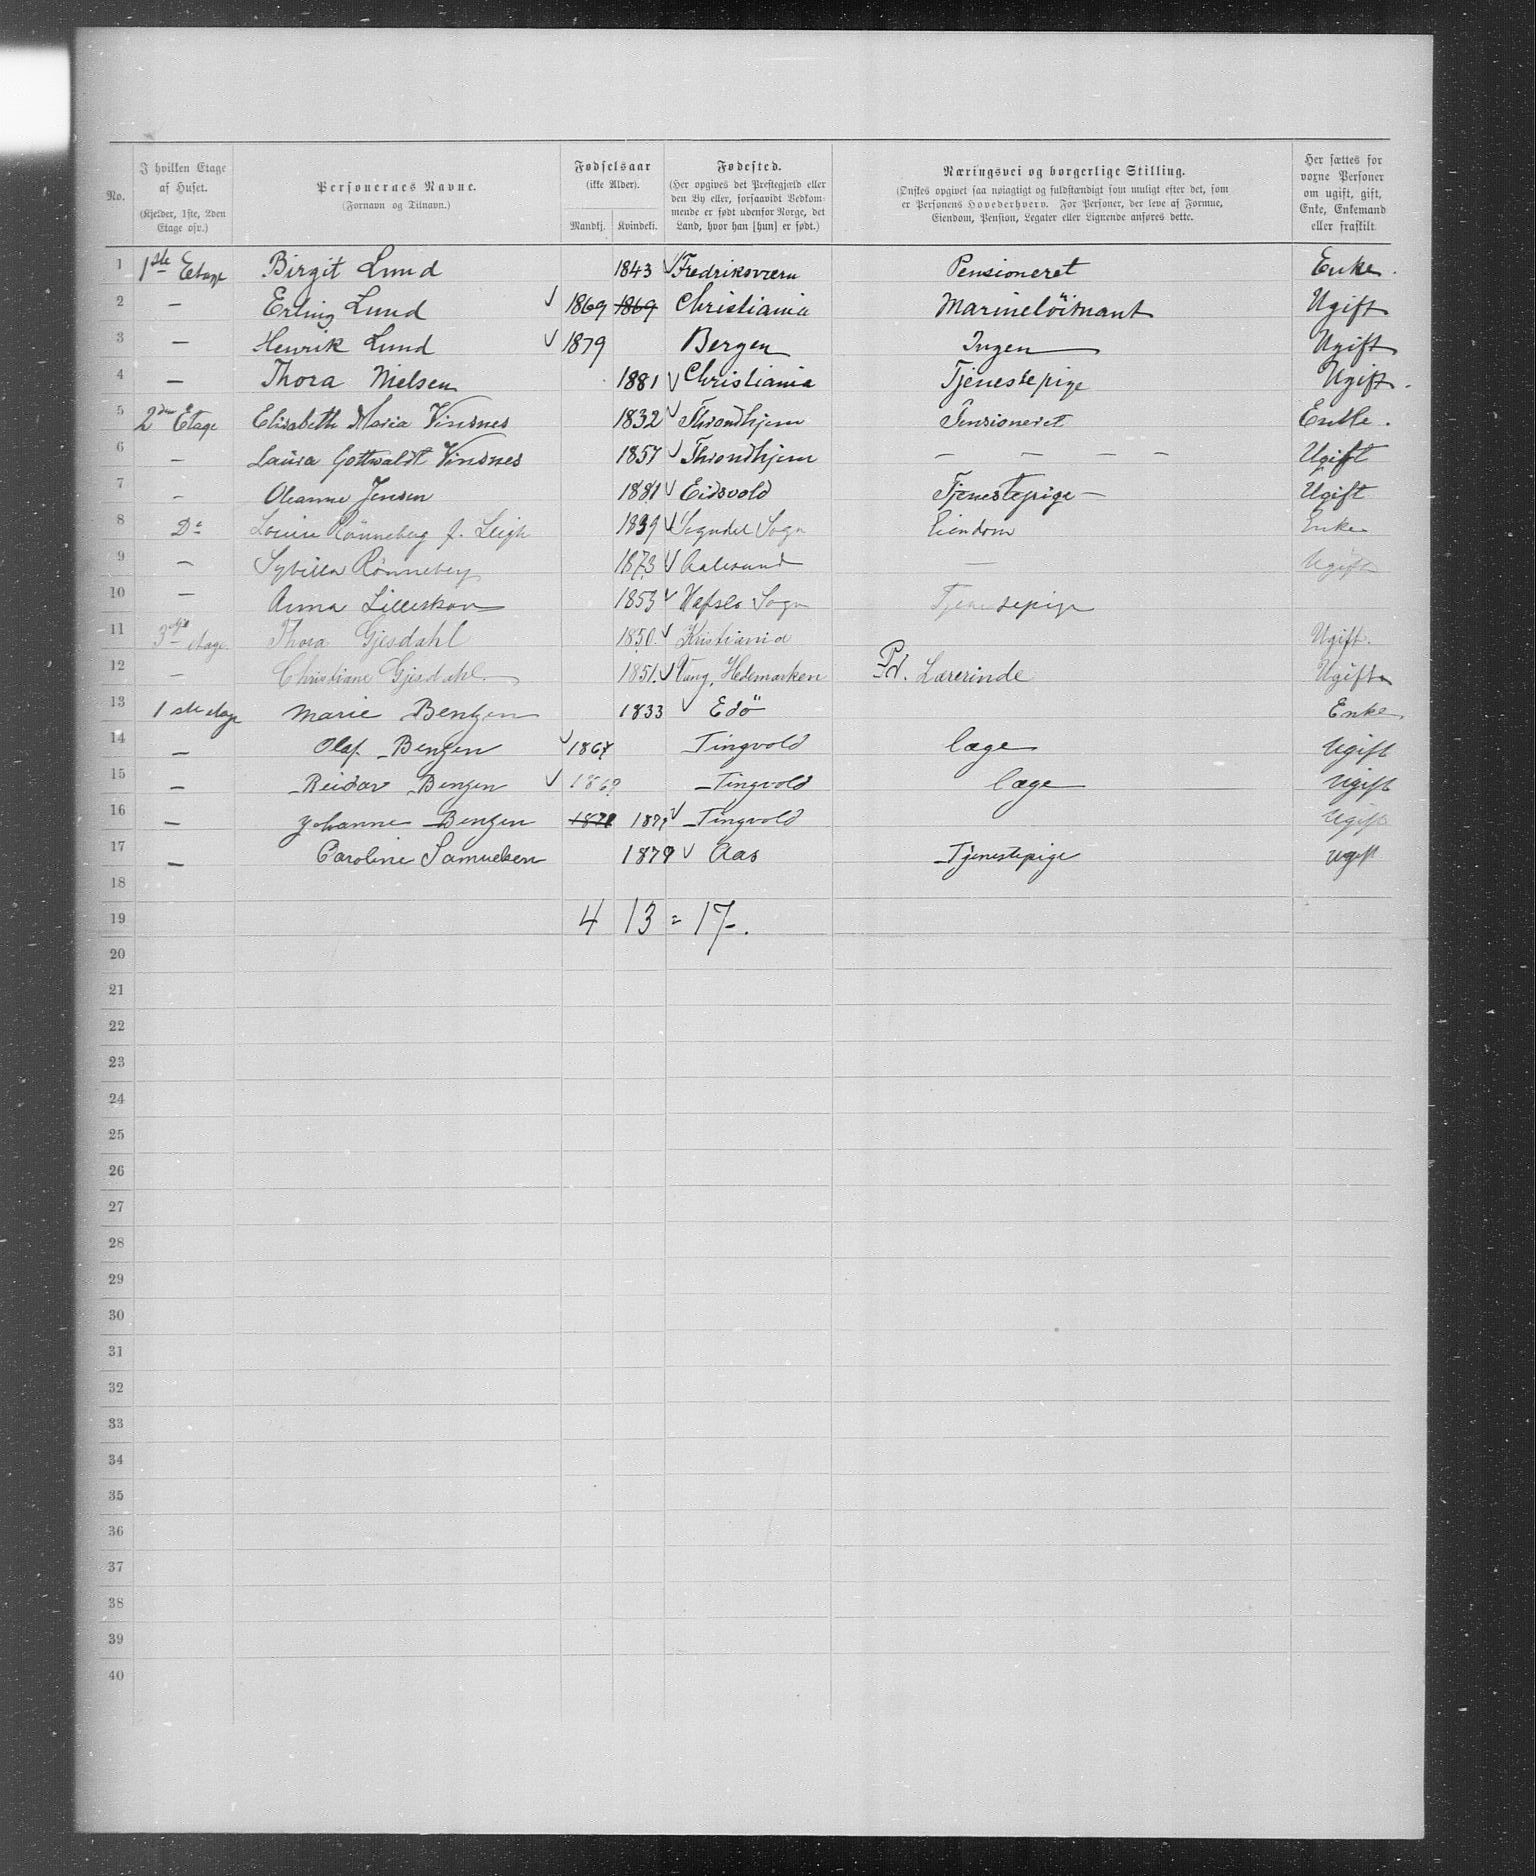 No.
I hvilken Etage af Huset. (Kjelder, 1ste, 2den Etage osv.)
Personernes Navne. (Fornavn og Tilnavn.)
Fødselsaar (ikke Alder). Mandkj. Kvindekj.
Fødested. (Her opgives det Prestegjæld eller den By eller, forsaavidt Vedkommende er født udenfor Norge, det Land, hvor han [hun] er født.)
Næringsvei og borgerlige Stilling. (Ønskes opgivet saa nøiagtigt og fuldstændigt som muligt efter det, som er Personens Hovederhverv. For Personer, der leve af Formue, Eiendom, Pension, Legater eller Lignende anføres dette.)
Her sættes for voxne Personer om ugift, gift, Enke, Enkemand eller fraskilt.
1 1ste Etage Birgit Lund 1843 Fredriksværn Pensioneret Enke.
2 — Erling Lund 1869 1869 Christiania Marinelöitnant Ugift
3 — Henrik Lund 1879 Bergen Ingen Ugift
4 — Thora Nielsen 1881 Christiania Tjenestepige Ugift.
5 2den Etage Elisabeth Maria Vinsnes 1832 Throndhjem Pensioneret Enke.
6 — Laura Gottwaldt Vinsnes 1857 Throndhjem — — — — Ugift
7 — Oleanne Jensen 1881 Eidsvold Tjenestepige — Ugift
8 Do Louise Rønneberg f. Leigh 1839 Sogndal Sogn Eiendom Enke
9 — Sybilla Rønneberg 1873 Aalesund — Ugift
10 — Anna Lilleskov 1853 Hafslo Sogn Tjenestepige
11 3die etage Thora Gjesdahl 1850. Kristiania Ugift.
12 — Christiane Gjesdahl. 1851. Vang, Hedemarken Pd. Lærerinde Ugift
13 1ste etage Marie Bentzen 1833 Edö Enke.
14 — Olaf Bentzen 1867 Tingvold læge Ugift
15 — Reidar Bentzen 1869 Tingvold læge Ugift
16 — Johanne Bentzen 1871 Tingvold Ugift
17 — Caroline Samuelsen 1879 Aas Tjenestepige Ugift
18
19 4 13 = 17.
20
21
22
23
24
25
26
27
28
29
30
31
32
33
34
35
36
37
38
39
40